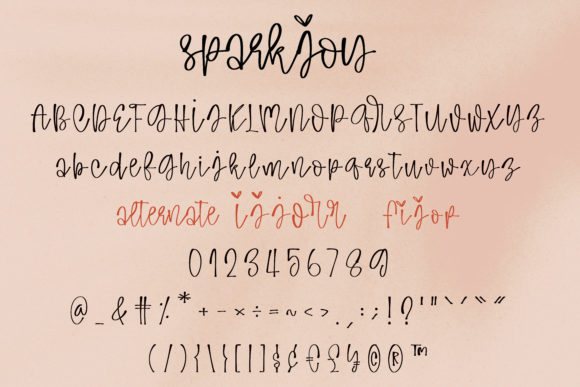 sparkjoy
ABCDEFGHIJKLMNOPQRSTUVWXYZ
abcdefghijklmnopqrstuvwxyz
alternate i j j o r r fijop
0123456789
@_&#%*+-×÷=~<>.,:;!?'"`´“”
(/){\}[|]$¢€£¥©®™